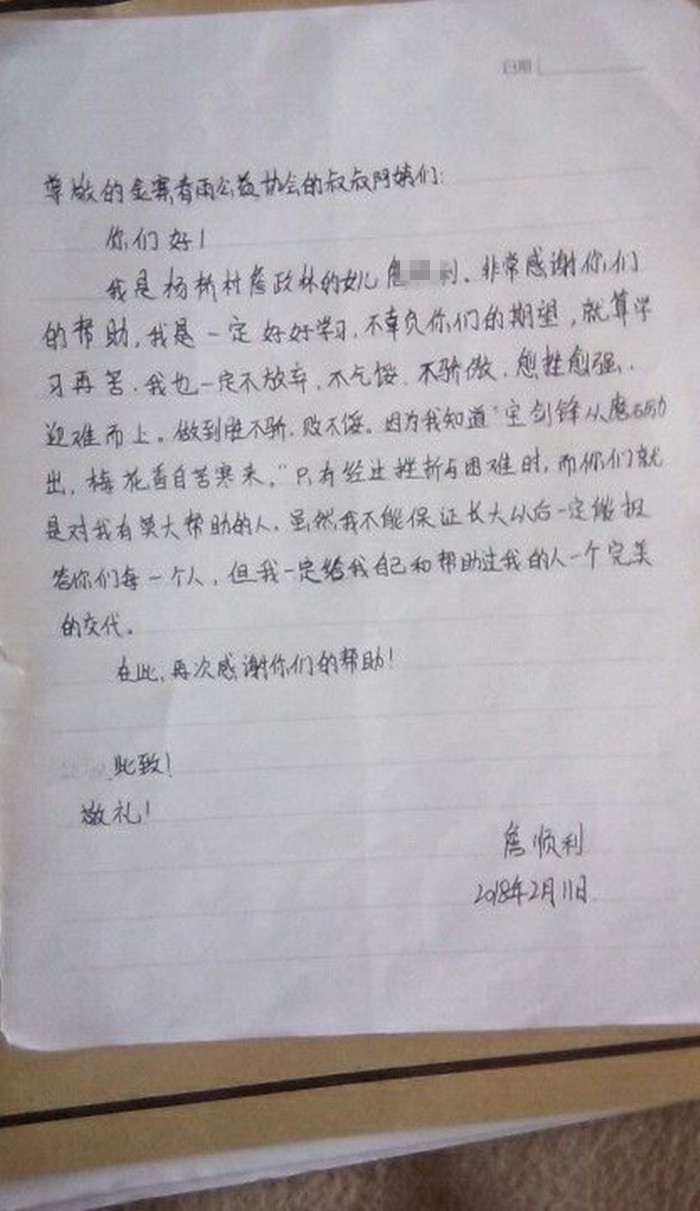 日期
尊敬的金寨春雨公益协会的叔叔阿姨们:
你们好!
我是杨桥村詹政林的女儿詹利,非常感谢你们
的帮助,我是一定好好学习,不辜负你们的期望,就算学
习再苦,我也一定不放弃,不气馁,不骄傲,愈挫愈强,
迎难而上。做到胜不骄,败不馁。因为我知道“宝剑锋从磨砺
出,梅花香自苦寒来,”只有经过挫折与困难时,而你们就
是对我有莫大帮助的人,虽然我不能保证长大以后一定能报
答你们每一个人,但我一定给我自己和帮助过我的人一个完美
的交代。
在此,再次感谢你们的帮助!
此致!
敬礼!
詹顺利
2018年2月11日